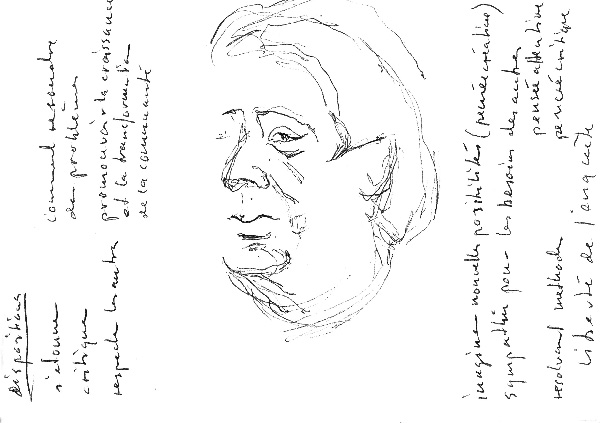 dispositions
s'étonne
critique
respecte les autres
comment resoudre
des problèmes
promouvoir la croissance
et la transformation
de la communauté
imagine nouvelles possibilités (pensée créative)
sympathie pour les besoins des autres
pensée affective
pensée critique
resolvant methodes
liberté de l'enquête